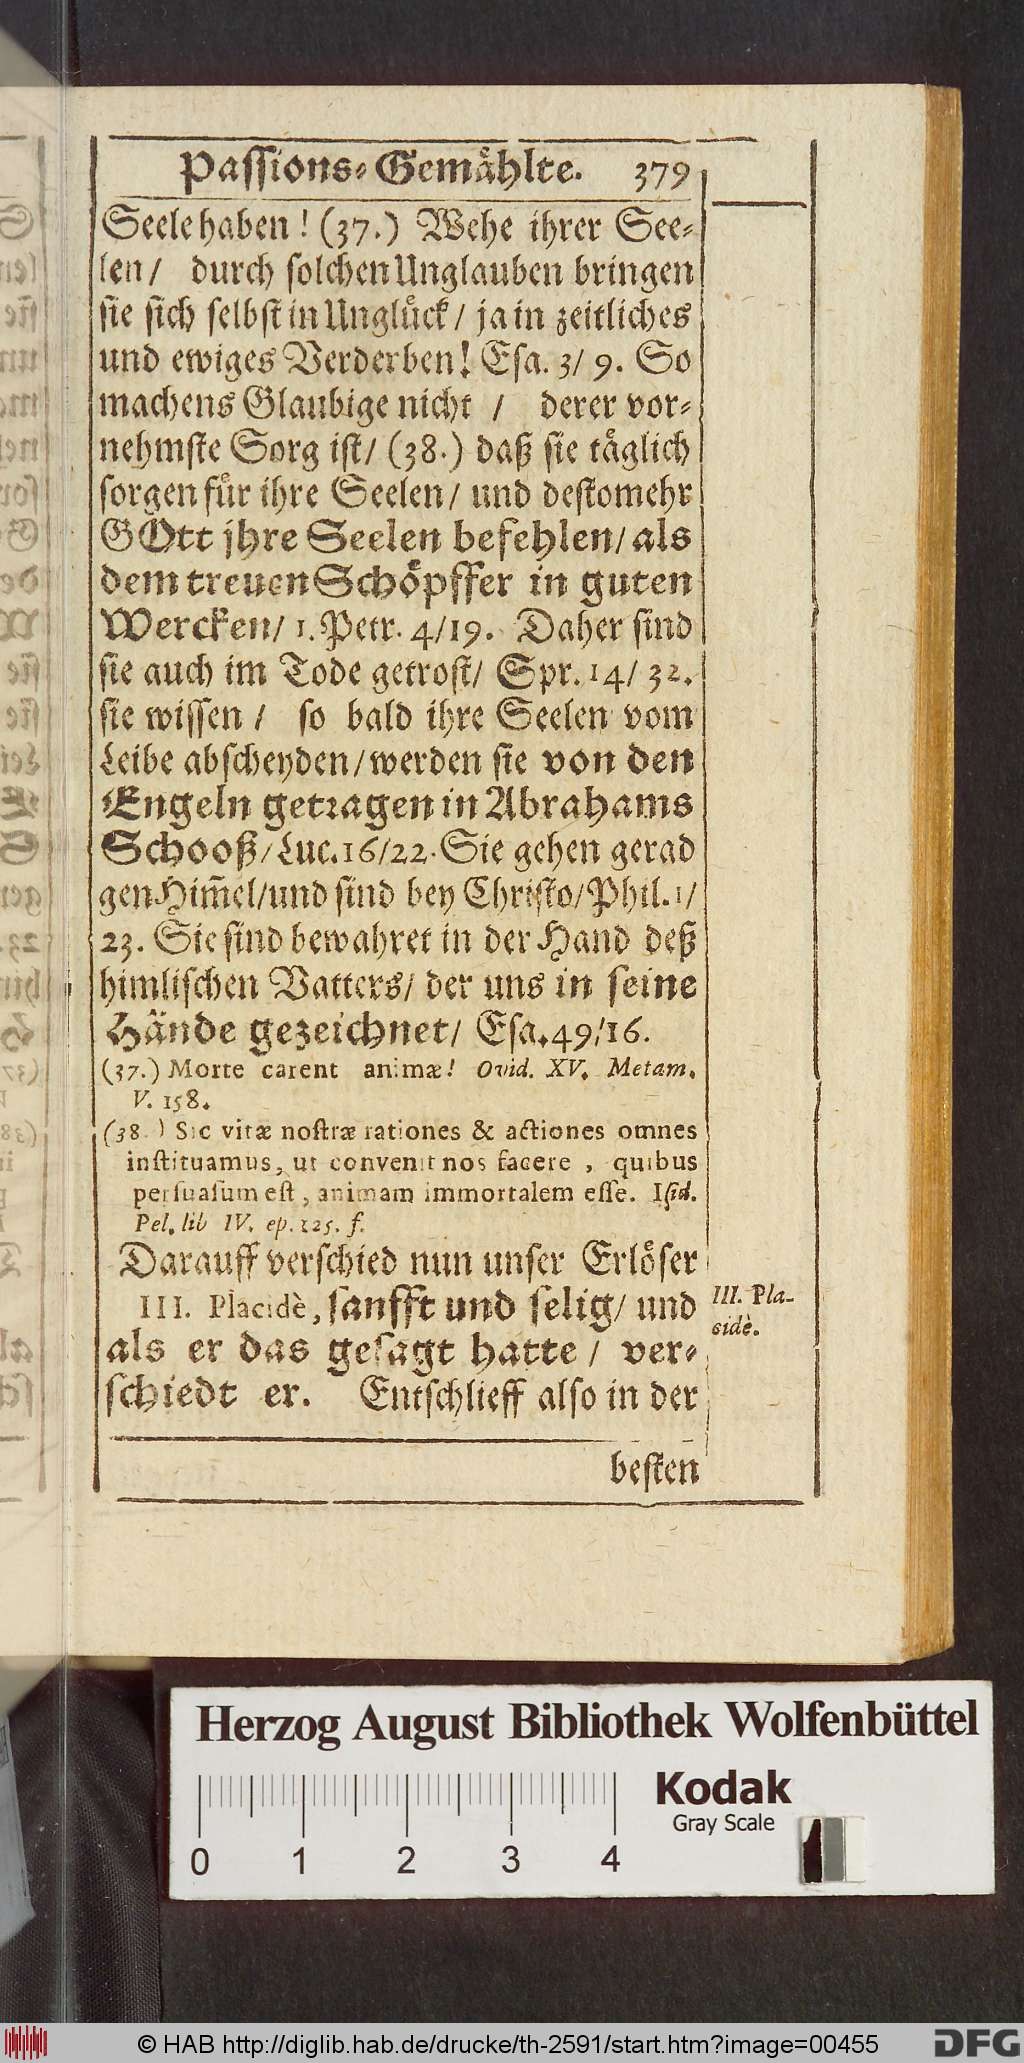 Passions-Gemählte. 379
Seele haben! (37.) Wehe ihrer See-
len/ durch solchen Unglauben bringen
sie sich selbst in Unglück/ ja in zeitliches
und ewiges Verderben! Esa. 3/ 9. So
machens Glaubige nicht / derer vor-
nehmste Sorg ist/ (38.) daß sie täglich
sorgen für ihre Seelen/ und destomehr
GOtt jhre Seelen befehlen/ als
dem treuen Schöpffer in guten
Wercken/ 1. Petr. 4/19. Daher sind
sie auch im Tode getrost/ Spr. 14/ 32.
sie wissen / so bald ihre Seelen vom
Leibe abscheyden/ werden sie von den
Engeln getragen in Abrahams
Schooß/ Luc. 16/22. Sie gehen gerad
gen Him̄el/ und sind bey Christo/ Phil. 1/
23. Sie sind bewahret in der Hand deß
himlischen Vatters/ der uns in seine
Hände gezeichnet/ Esa. 49/16.
(37.) Morte carent animæ! Ovid. XV. Metam.
V. 158.
(38.) Sic vitæ nostræ rationes & actiones omnes
instituamus, ut convenit nos facere, quibus
persuasum est, animam immortalem esse. Isid.
Pel. lib IV. ep. 125. f.
Darauff verschied nun unser Erlöser
III. Placidè, sanfft und selig/ und
als er das gesagt hatte/ ver-
schiedt er. Entschlieff also in der
besten
III. Pla-
cidè.
Herzog August Bibliothek Wolfenbüttel
Kodak
Gray Scale
0 1 2 3 4
© HAB http://diglib.hab.de/drucke/th-2591/start.htm?image=00455
DFG